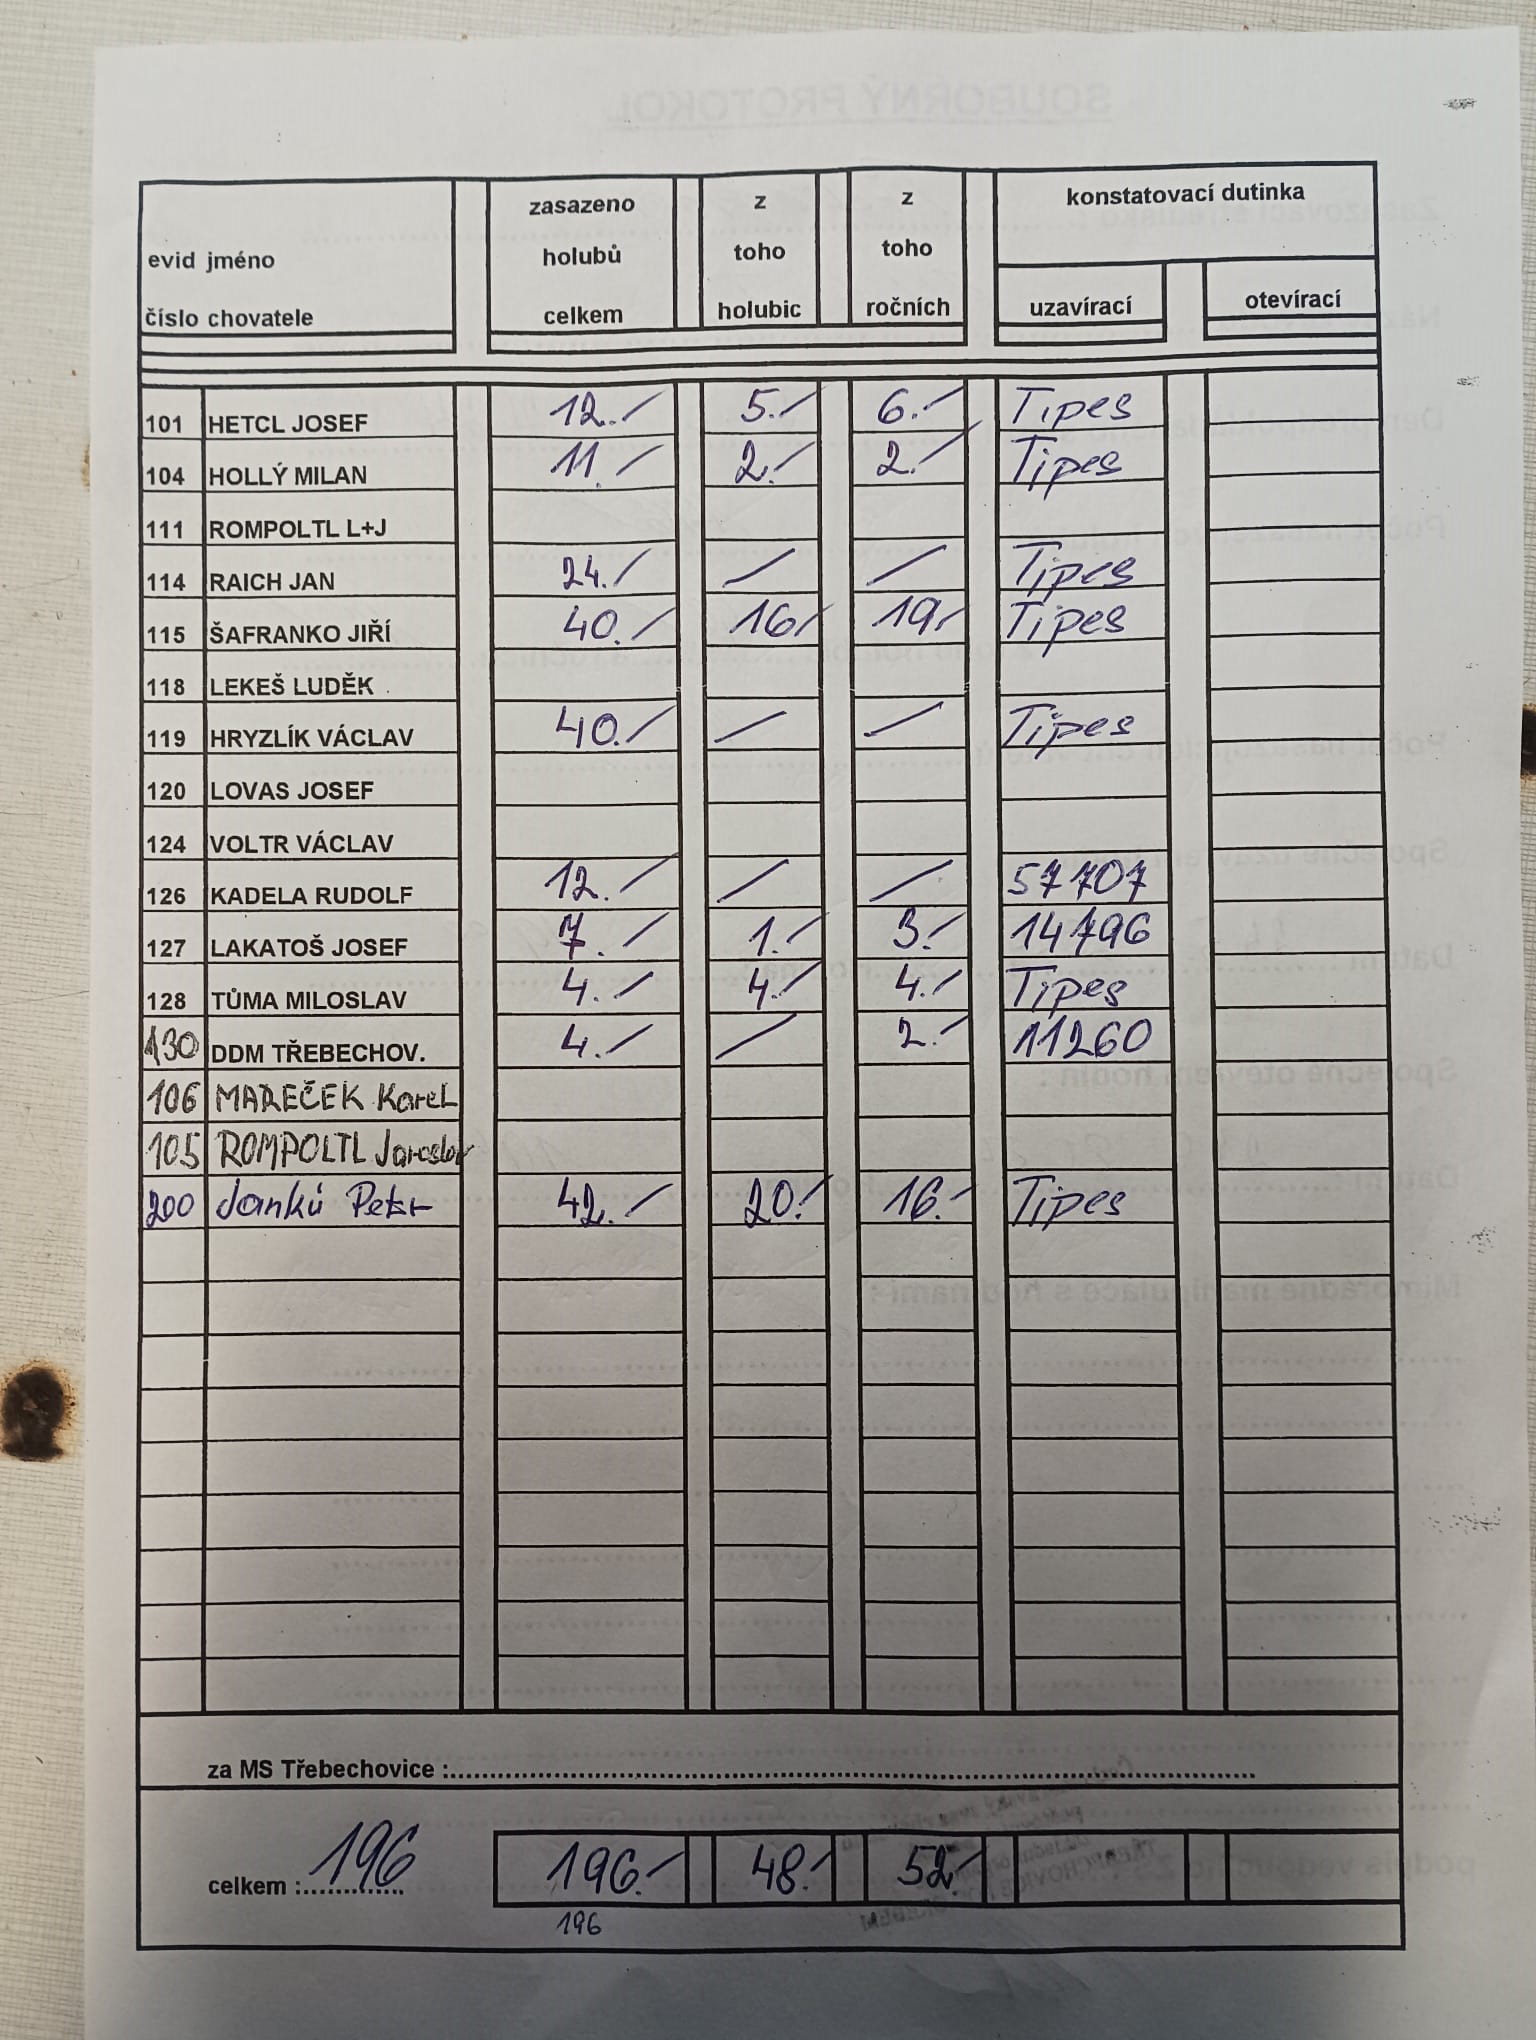 zasazeno z z konstatovací dutinka
evid jméno holubů toho toho
číslo chovatele celkem holubic ročních uzavírací otevírací
101 HETCL JOSEF 12.- 5.- 6.- Tipes
104 HOLLÝ MILAN 11.- 2.- 2.- Tipes
111 ROMPOLTL L+J
114 RAICH JAN 24.- - - Tipes
115 ŠAFRANKO JIŘÍ 40.- 16.- 19.- Tipes
118 LEKEŠ LUDĚK
119 HRYZLÍK VÁCLAV 40.- - - Tipes
120 LOVAS JOSEF
124 VOLTR VÁCLAV
126 KADELA RUDOLF 12.- - - 57707
127 LAKATOŠ JOSEF 7.- 1.- 3.- 14796
128 TŮMA MILOSLAV 4.- 4.- 4.- Tipes
130 DDM TŘEBECHOV. 4.- - 2.- 11260
106 MAREČEK Karel
105 ROMPOLTL Jaroslav
200 Janků Petr 42.- 20.- 16.- Tipes
za MS Třebechovice :
celkem : 196 196.- 48.- 52.-
196